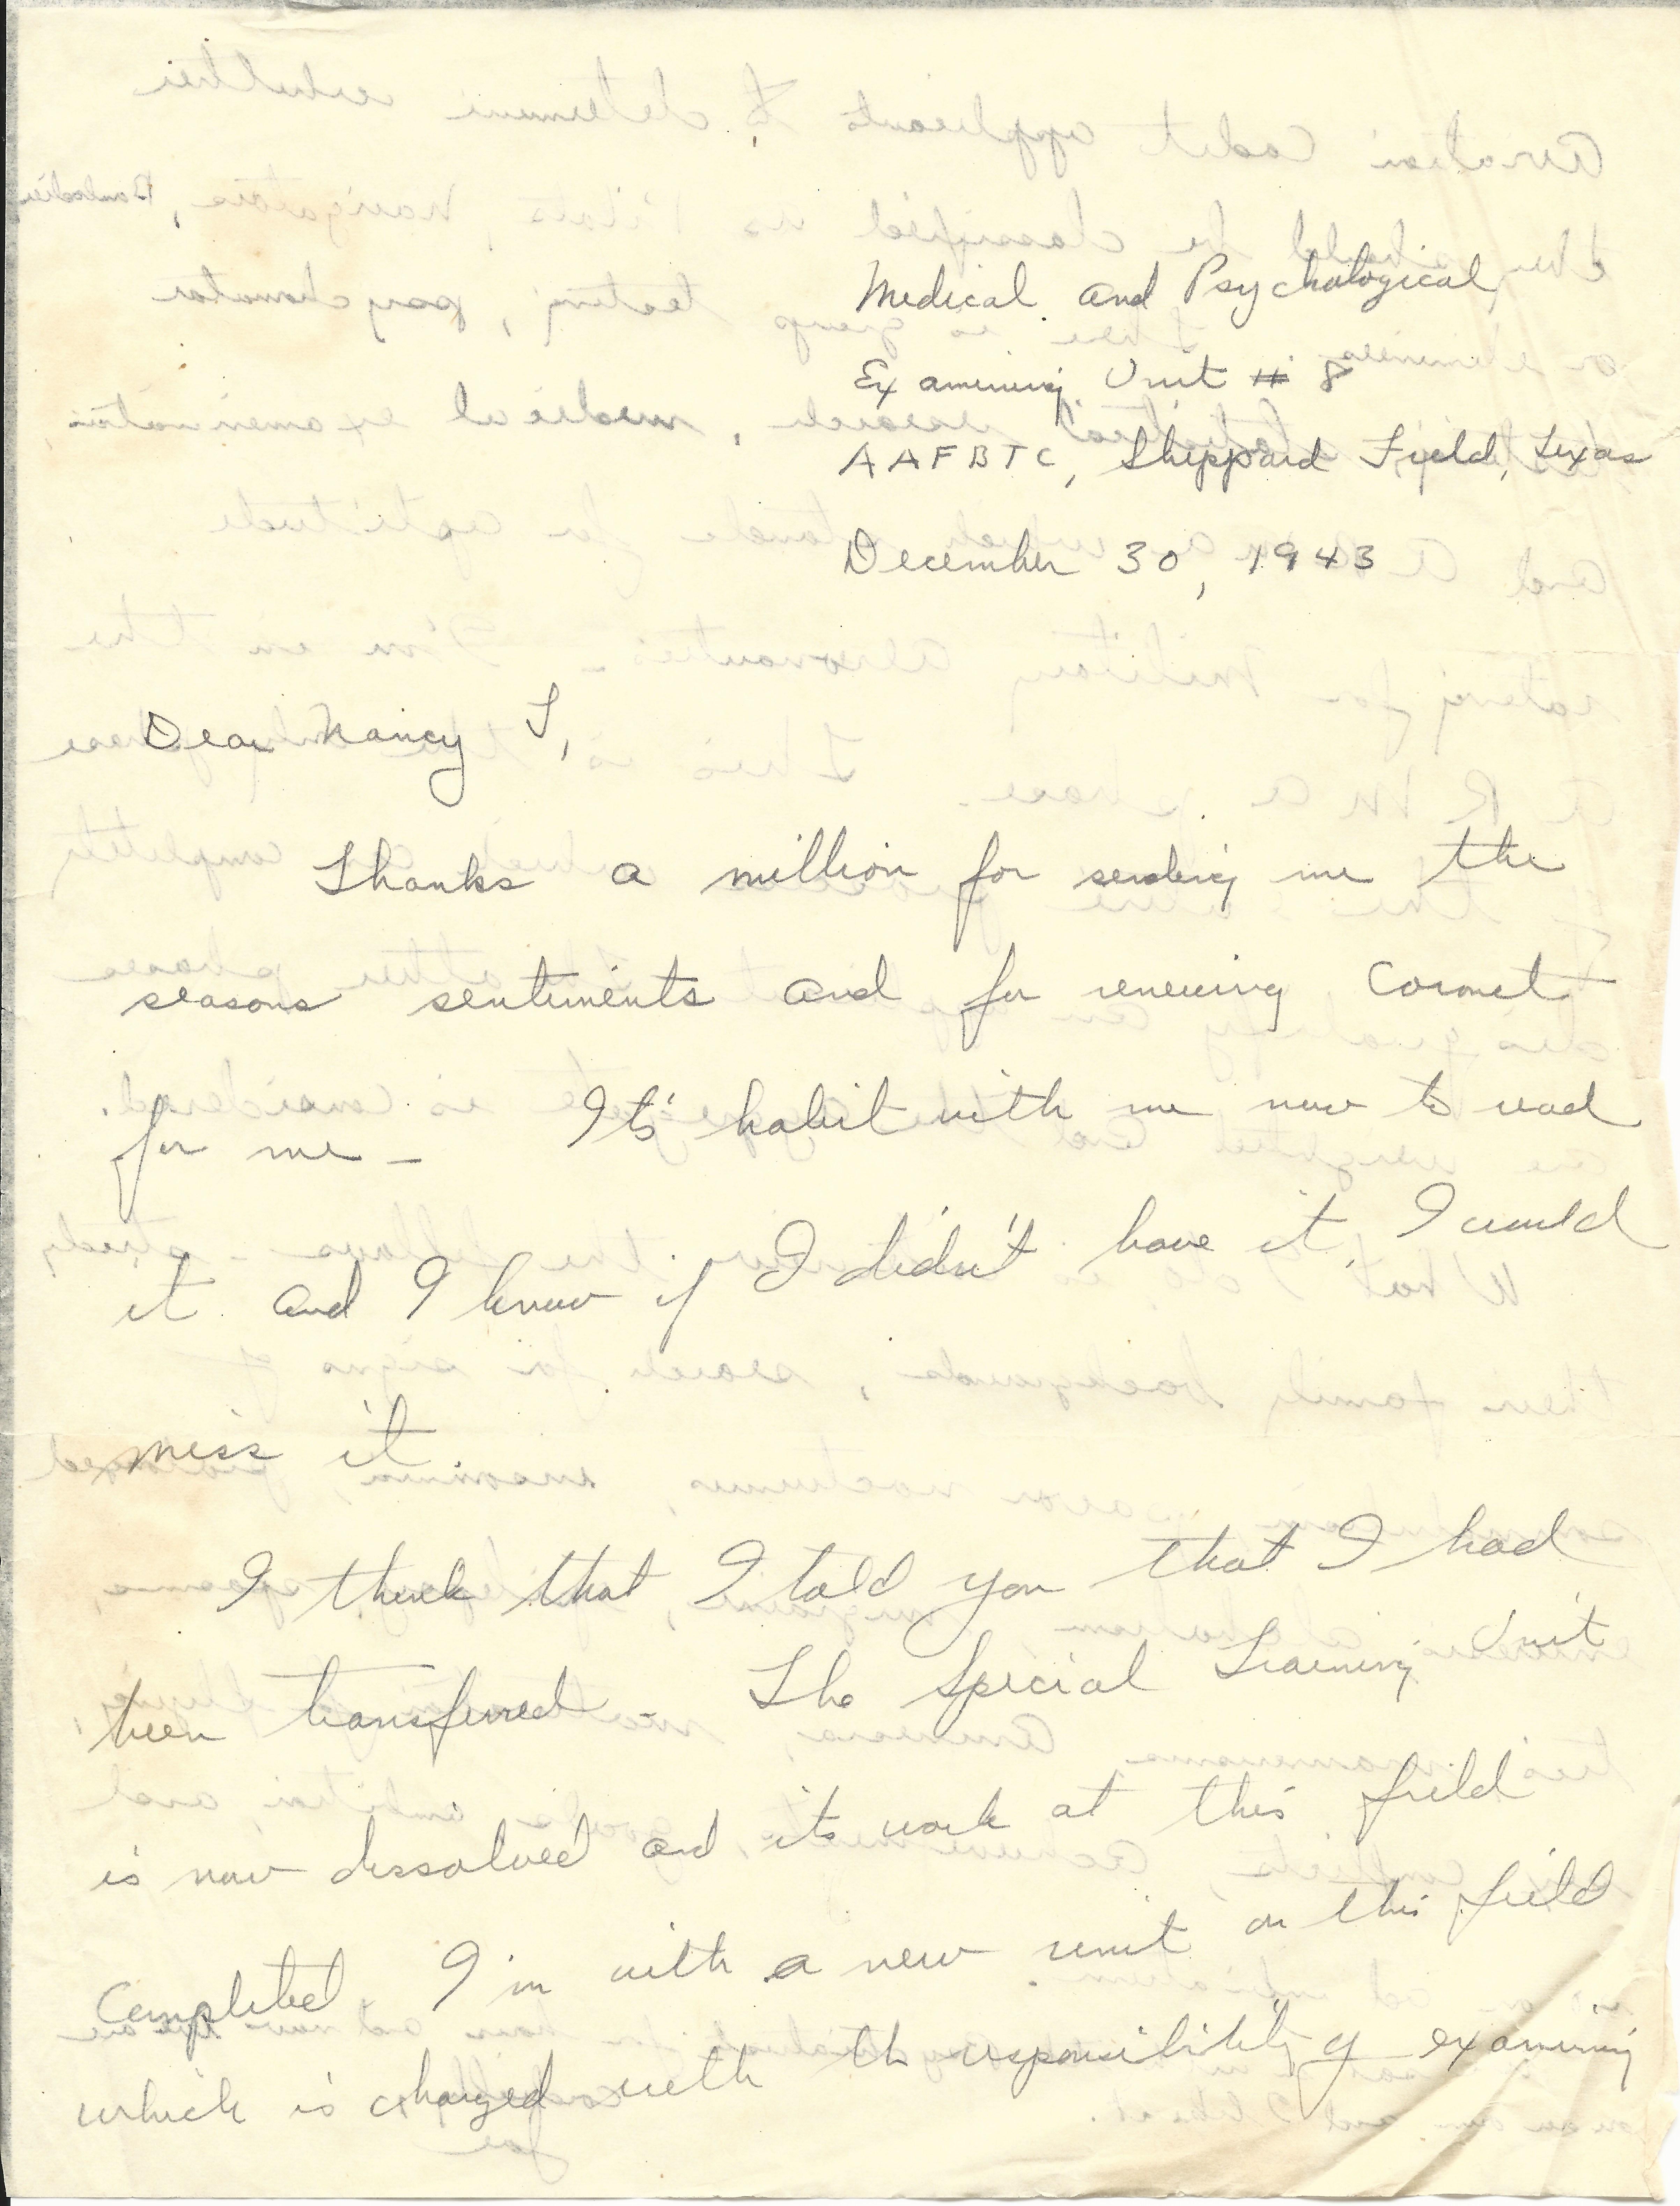 Medical and Psychological
Examining Unit # 8
AAFBTC, Sheppard Field, Texas
December 30, 1943
Dear Nancy J,
Thanks a million for sending me the
seasons sentiments and for renewing Coronet
for me - It's habit with me now to read
it and I know if I didn't have it, I would
miss it
I think that I told you that I had
been transferred - The Special Training Unit
is now dissolved and its work at this field
completed. I'm with a new unit on this field
which is charged with th responsibility of examining